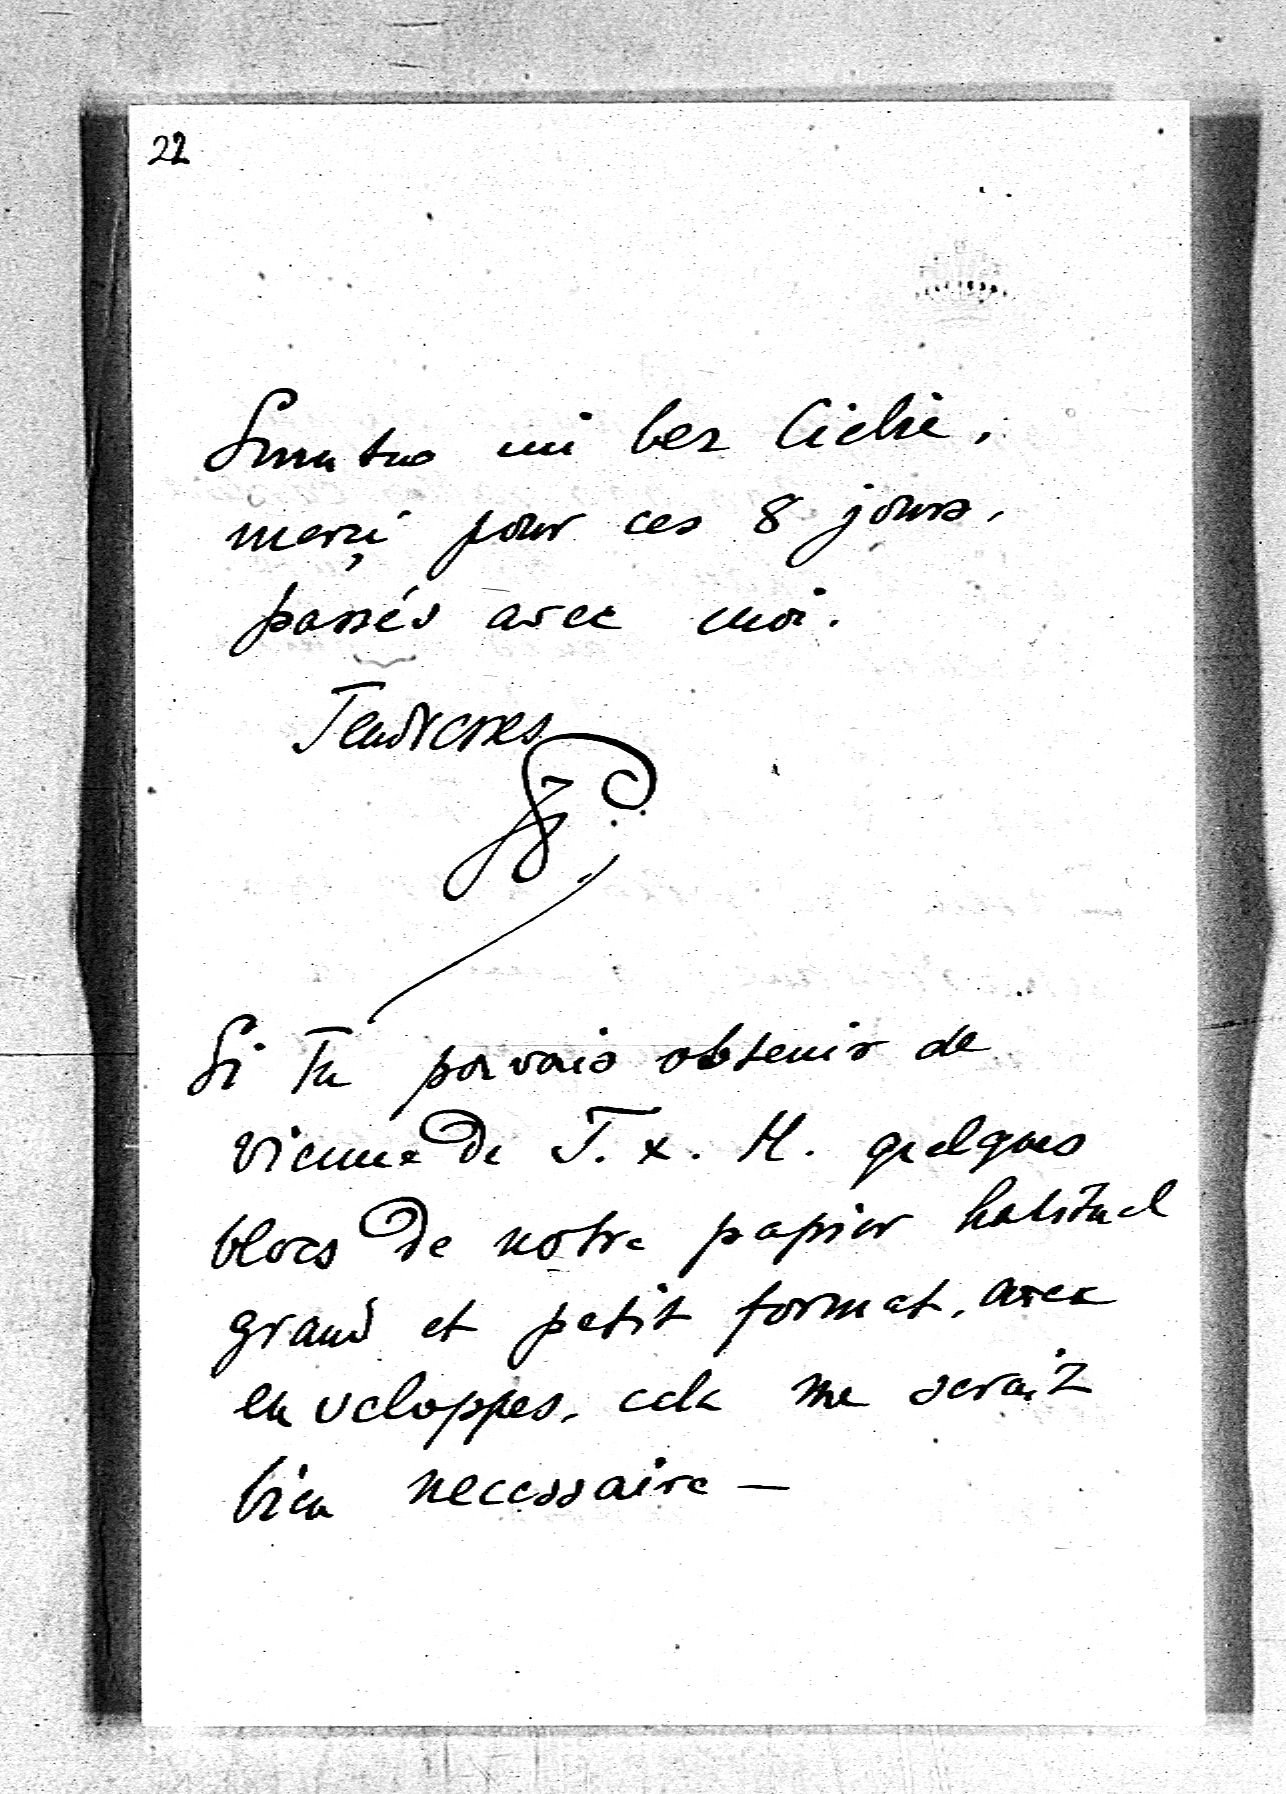 22
Smutno mi bez Ciebie,
merçi pour ces 8 jours,
passés avec moi.
Tendresses
Si Tu pouvais obtenir de
vienne de T. x. H. quelques
blocs de notre papier habituel
grand et petit format, avec
enveloppes, cela me serait
bien necessaire —